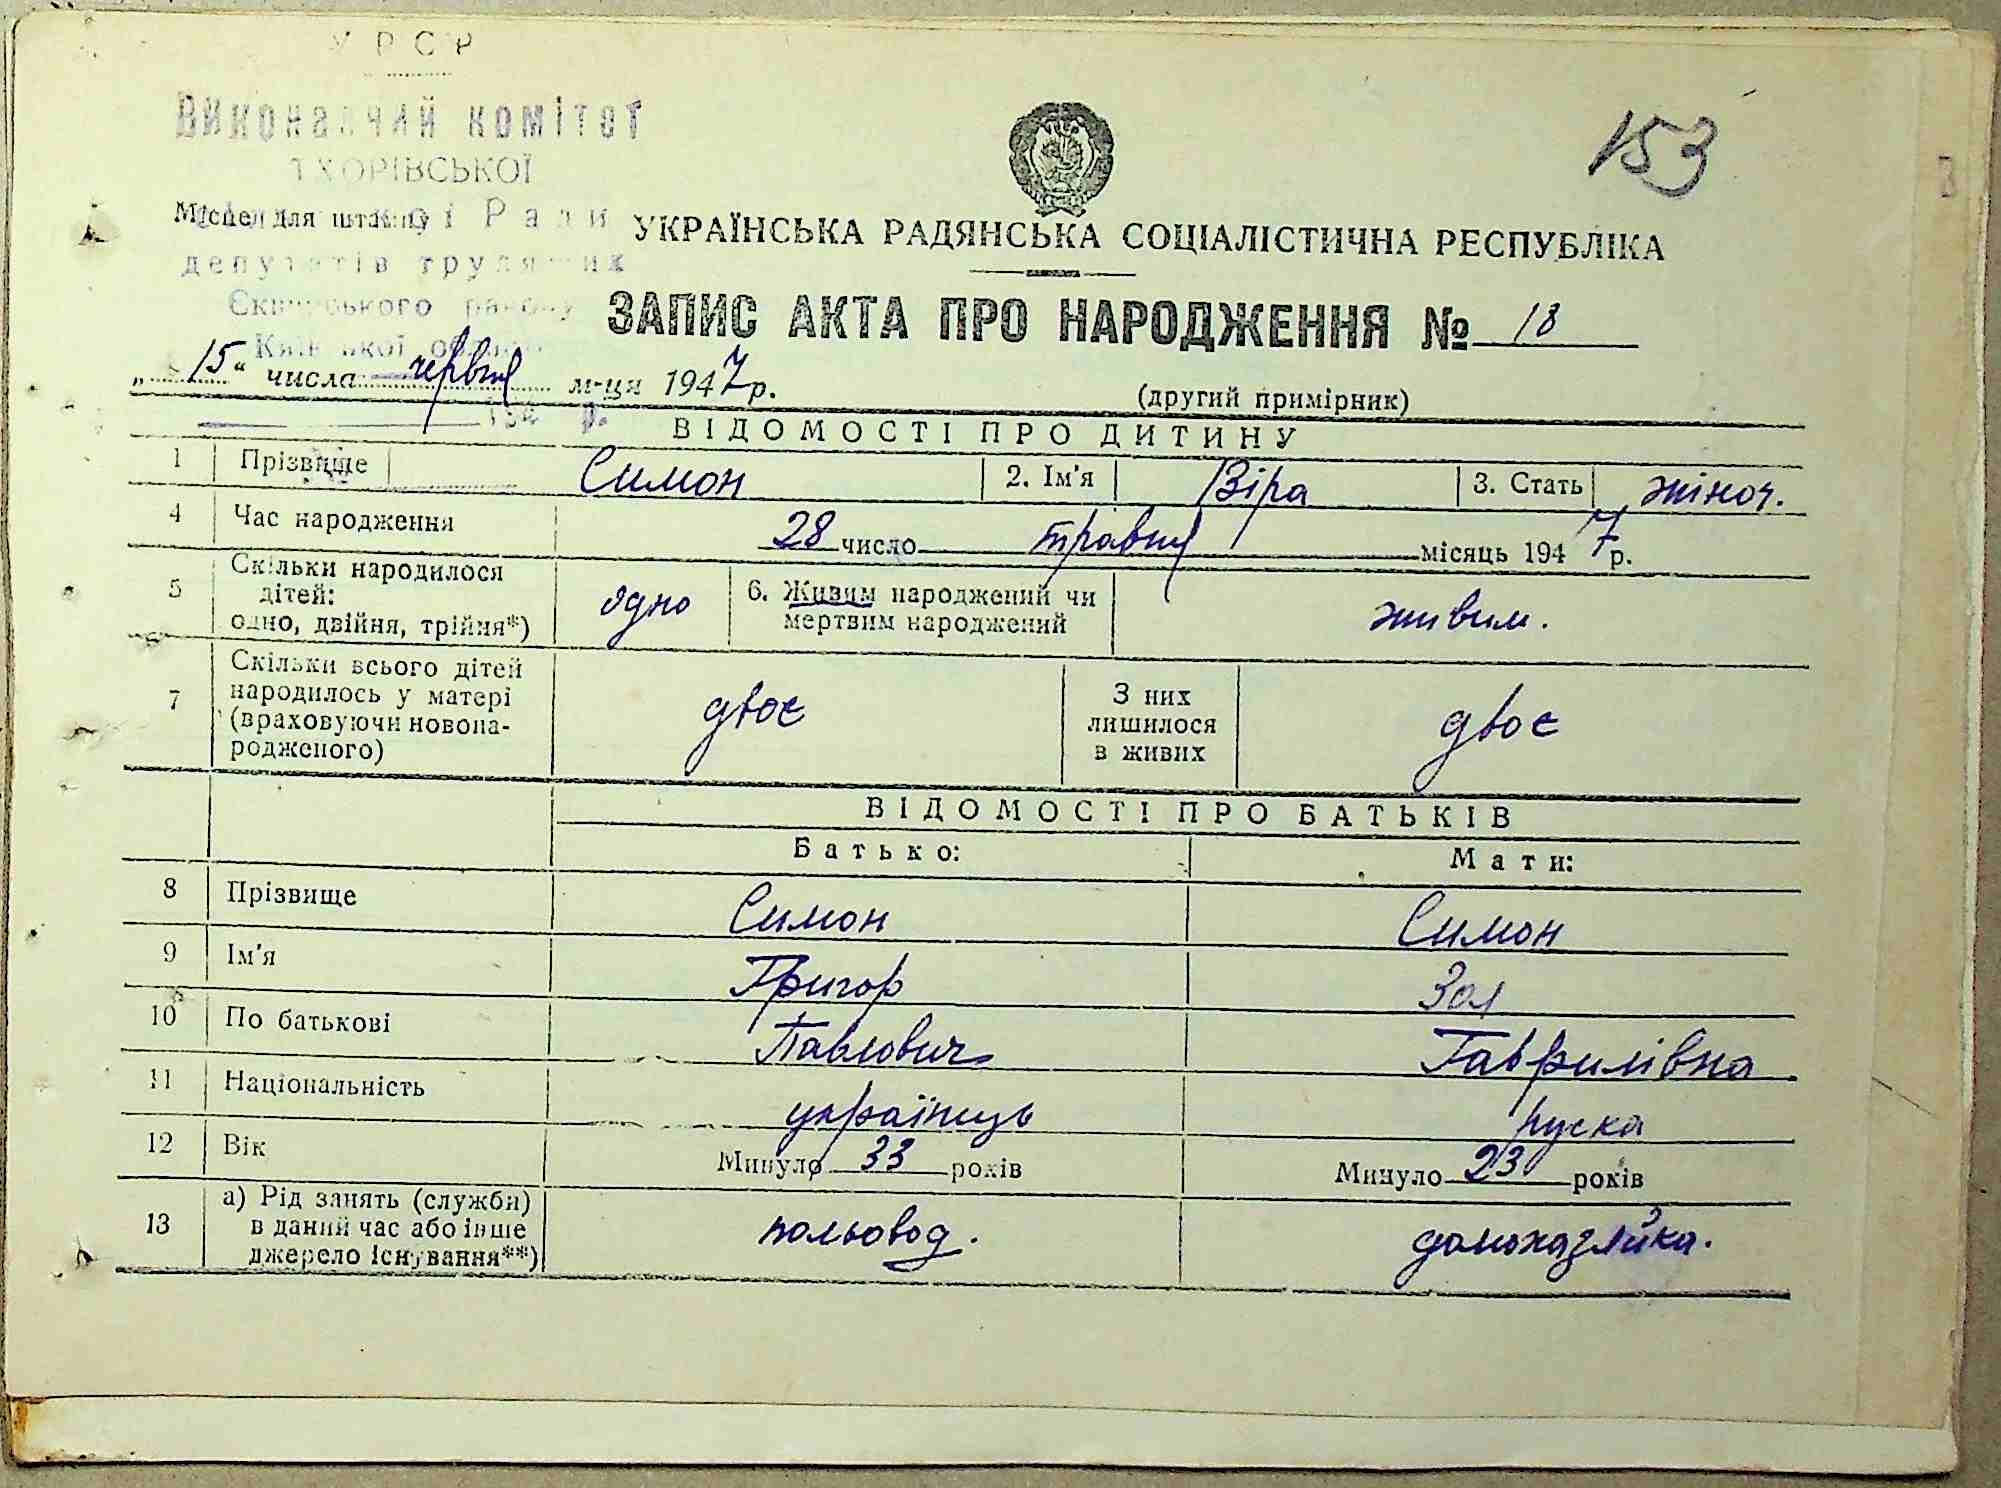 УРСР
Виконавчий комітет
ТХОРІВСЬКОЇ
Місце для штампу
Ради
депутатів трудящих
району
153
УКРАЇНСЬКА РАДЯНСЬКА СОЦІАЛІСТИЧНА РЕСПУБЛІКА
ЗАПИС АКТА ПРО НАРОДЖЕННЯ № 18
„15“ числа червня м-ця 1947 р.
(другий примірник)
194 р.
ВІДОМОСТІ ПРО ДИТИНУ
1 Прізвище Симон 2. Ім'я Віра 3. Стать жіноч.
4 Час народження 28 число травня місяць 1947 р.
5 Скільки народилося дітей: одно, двійня, трійня*) одно 6. Живим народжений чи мертвим народжений живим.
7 Скільки всього дітей народилось у матері (враховуючи новонародженого) двоє З них лишилося в живих двоє
ВІДОМОСТІ ПРО БАТЬКІВ
Батько: Мати:
8 Прізвище Симон Симон
9 Ім'я Григор Зоя
10 По батькові Павлович Гаврилівна
11 Національність українць руска
12 Вік Минуло 33 років Минуло 23 років
13 а) Рід занять (служби) в даний час або інше джерело існування**) польовод. домохазяйка.